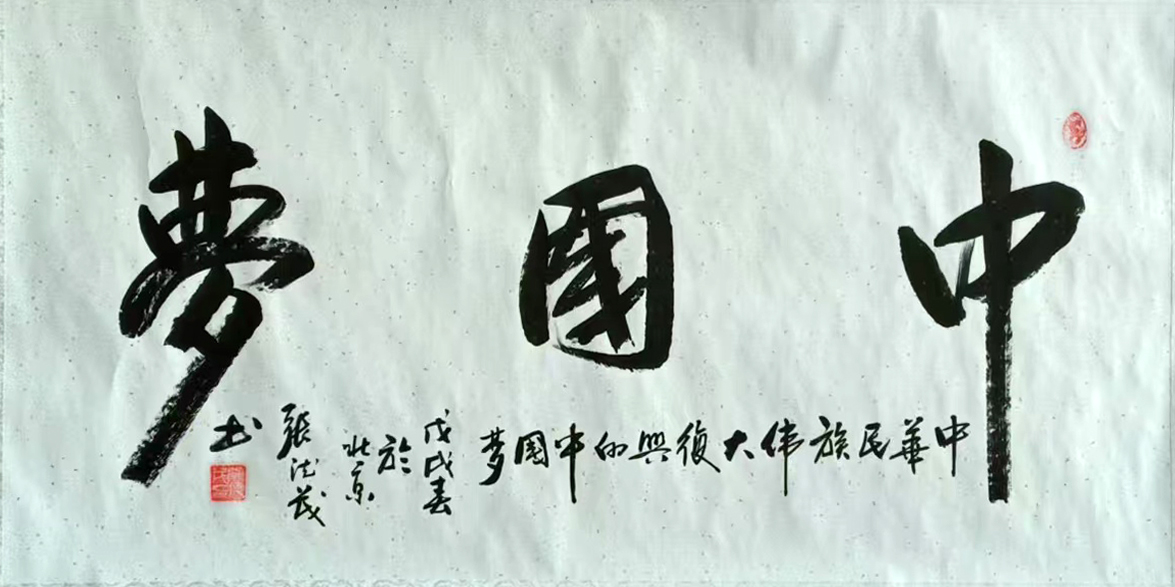 中國夢
中華民族伟大復興的中國夢
戊戌春
於
北京
張法茂
书